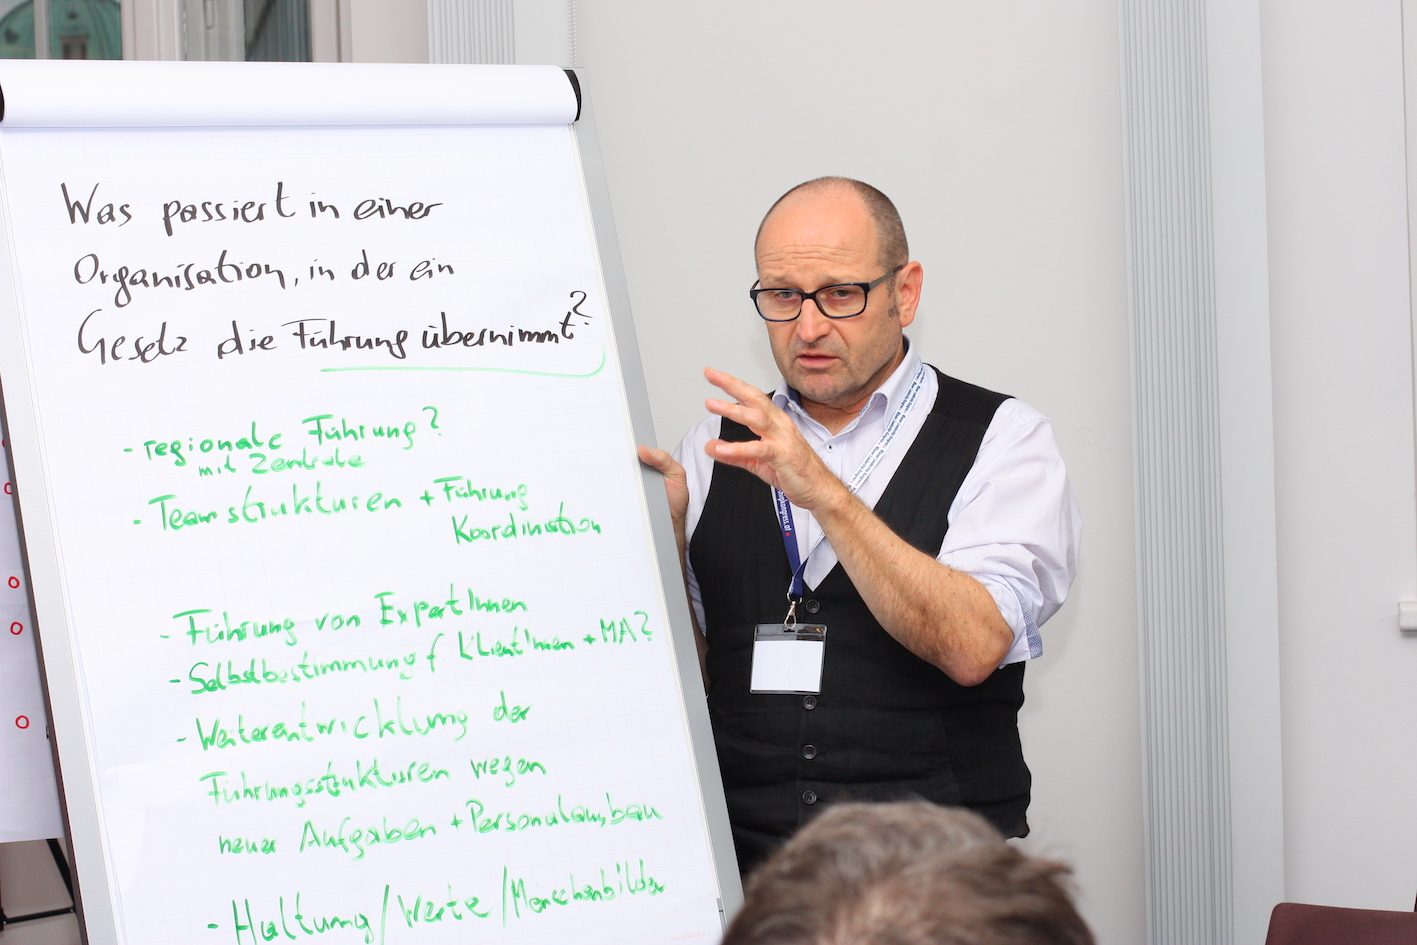 Was passiert in einer
Organisation, in der ein
Gesetz die Führung übernimmt?
- regionale Führung?
mit Zentrale
- Teamstrukturen + Führung
Koordination
- Führung von ExpertInnen
- Selbstbestimmung f Klient*Innen + MA?
- Weiterentwicklung der
Führungsstrukturen wegen
neuer Aufgaben + Personalausbau
- Haltung/Werte/Menschenbilder